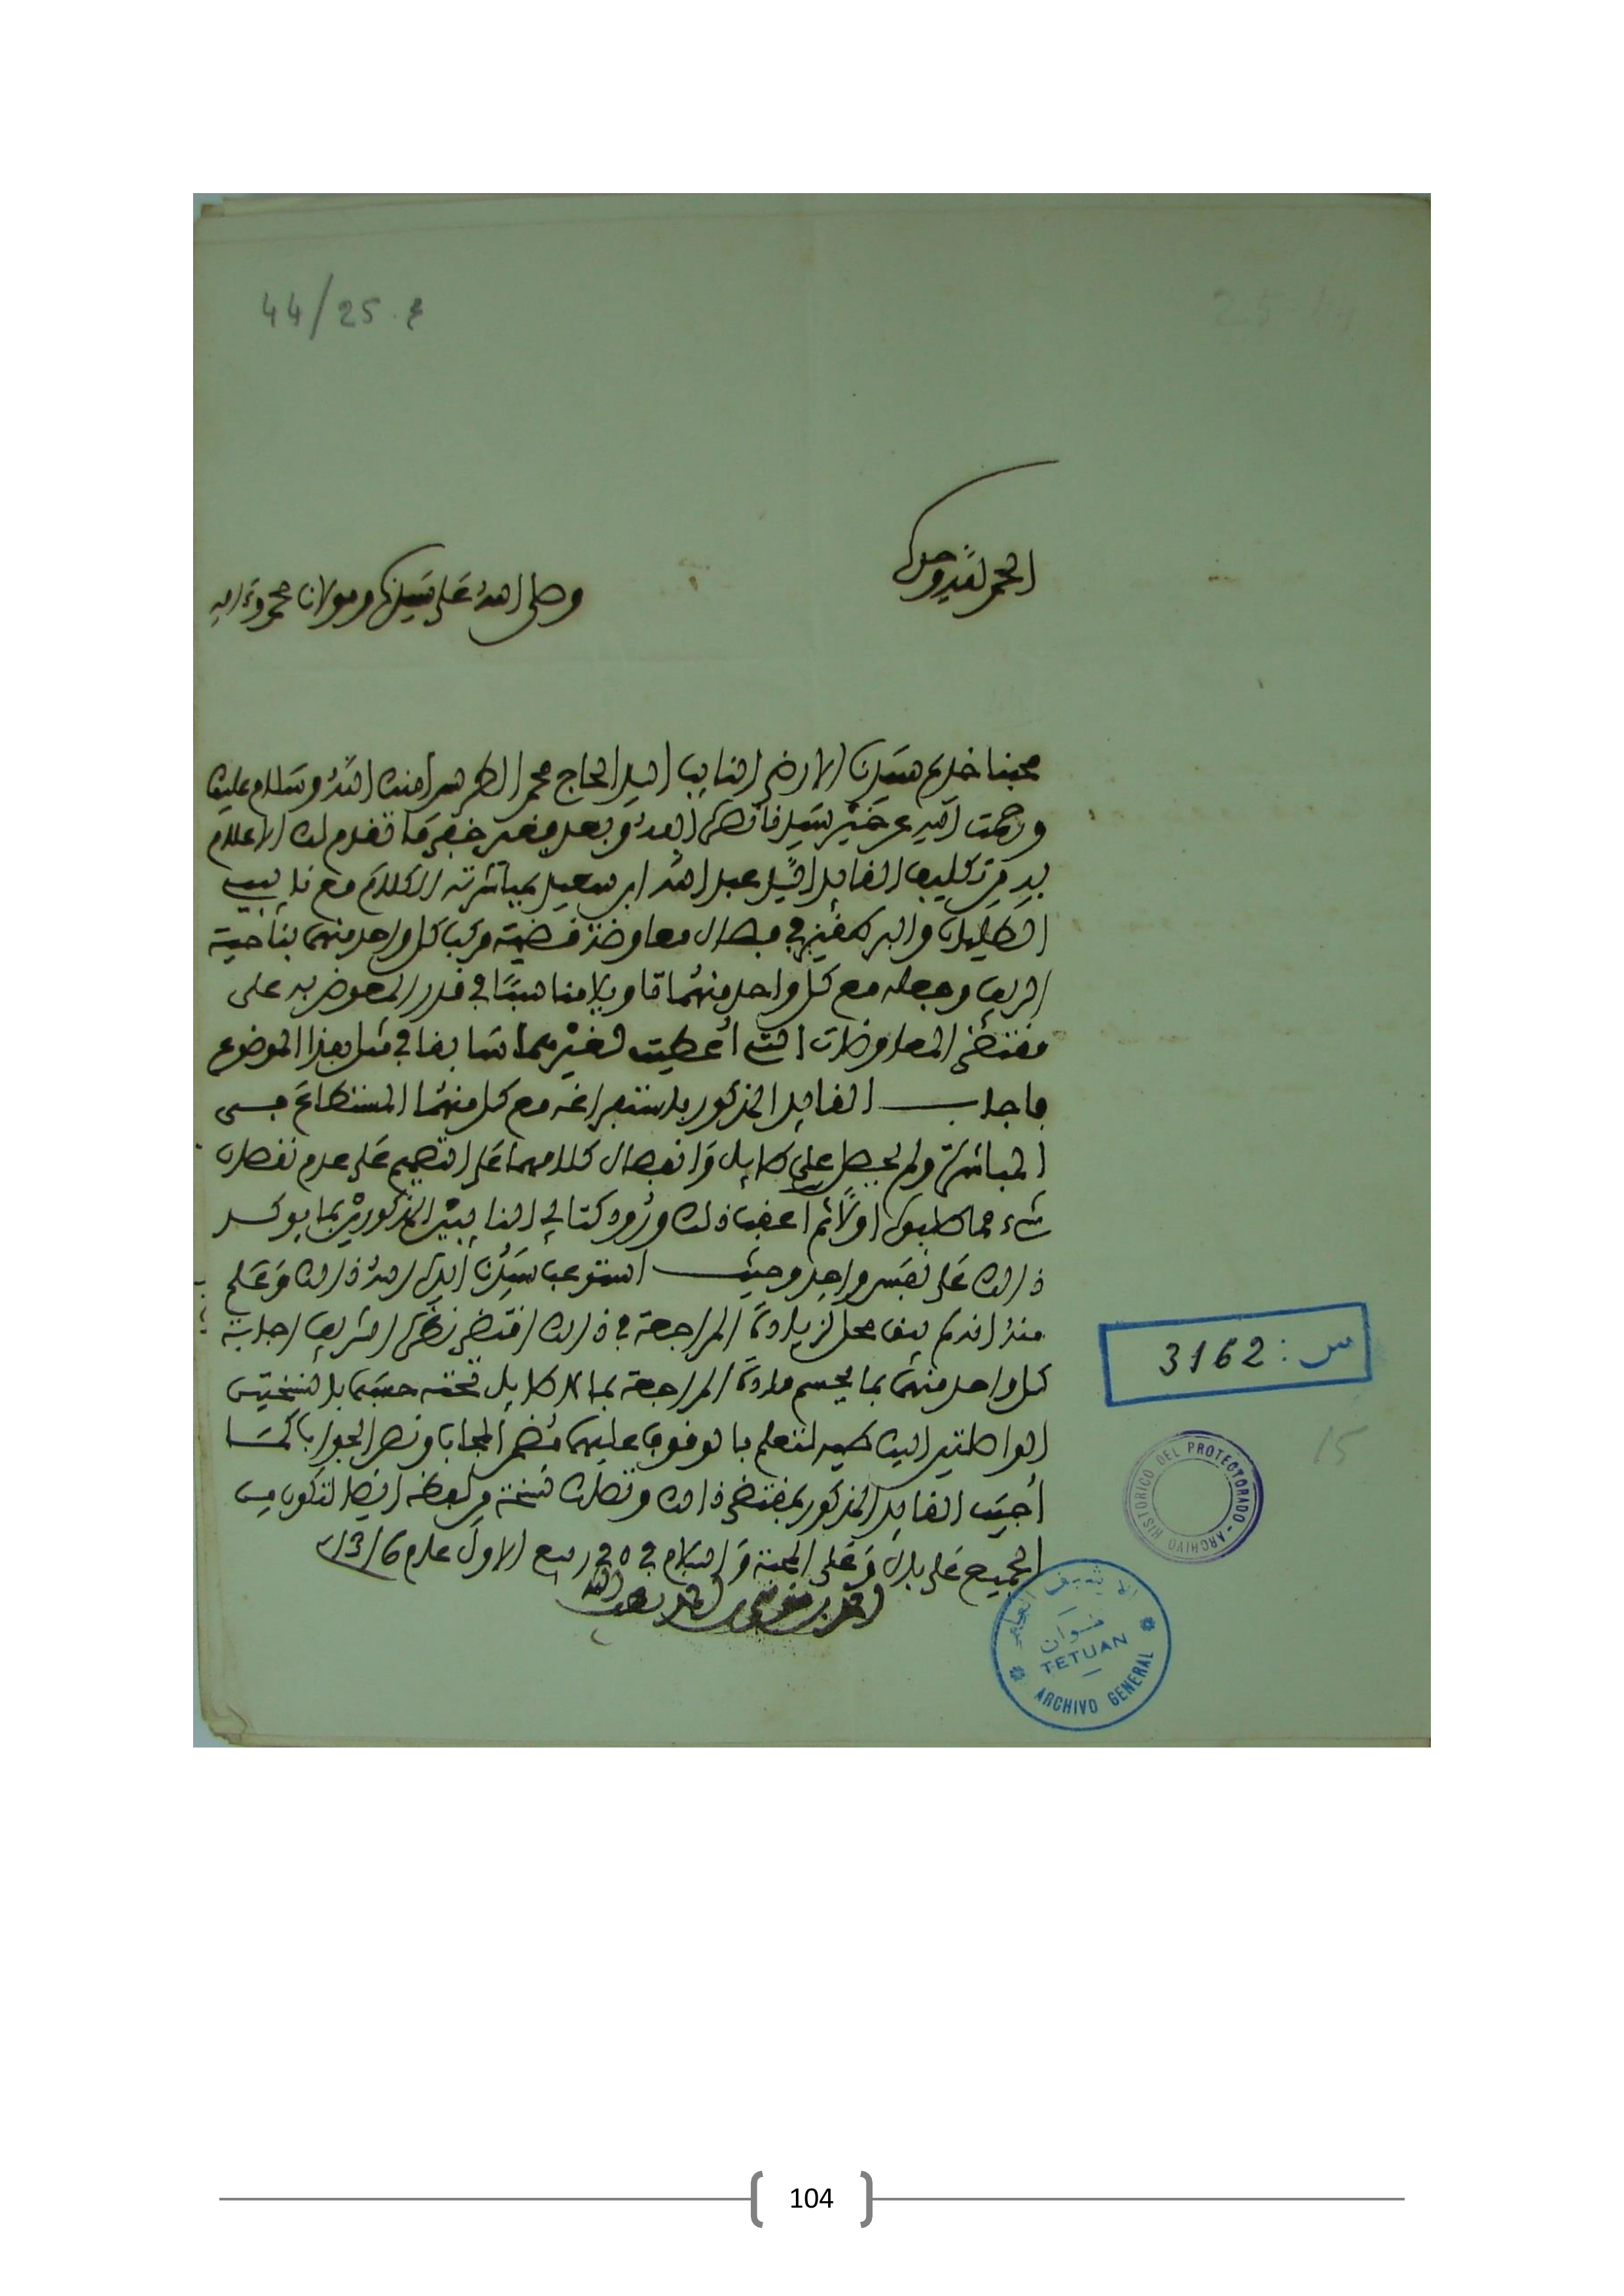 44/25 . م
الحمد لله وحده
وصلى الله على سيدنا ومولانا محمد وءاله
محبنا خديم سيدنا الارضى النايب السيد الحاج محمد الطريس امنك الله وسلام عليك
ورحمت الله عن خير سيدنا نصره الله وبعد فغير خفي ما تقدم لك الاعلام
به من تكليف القايد السيد عبد الله ابن سعيد بمباشرته الكلام مع نايبي
الطليان والبرطقيز في فصال معاوضة قضية مركب كل واحد منهما بناحية
الريف وجعله مع كل واحد منهما تاويلا مناسبا في قدر المعوض به على
مقتضى المعاوضات التي أعطيت لغيرهما سابقا في مثل هذا الموضوع
فاجاب القايد المذكور باستفراغه مع كل منهما المستطاع في
المباشرة ولم يحصل على طايل وانفصال كلامهما على التصميم على عدم نقصان
شيء مما طلبوه اولا ثم اعقب ذلك ورود كتابي النايبين المذكورين بما يوكد
ذالك على نفس واحد وحيث استوعب سيدنا ايده الله ذالك وعلم
منه انه لم يبق محل لزيادة المراجعة في ذالك اقتضى نظره الشريف اجابة
كل واحد منهما بما يحسم مادة المراجعة بما لا طايل تحته حسبما بالنسختين
الواصلتين اليك طيه لتعلم بالوقوف عليهما مضمن المجاب ونص الجواب كما
أجيب القايد المذكور بمقتضى ذالك وتصلك نسخة من لفظه ايضا لتكون من
الجميع على بال وعلى المحبة والسلام في ٥ في ربيع الاول عام 1316
احمد بن موسى بن احمد لطف الله به
س : 3162
15
ARCHIVO HISTORICO DEL PROTECTORADO
الارشيف العام
تطوان
TETUAN
ARCHIVO GENERAL
104